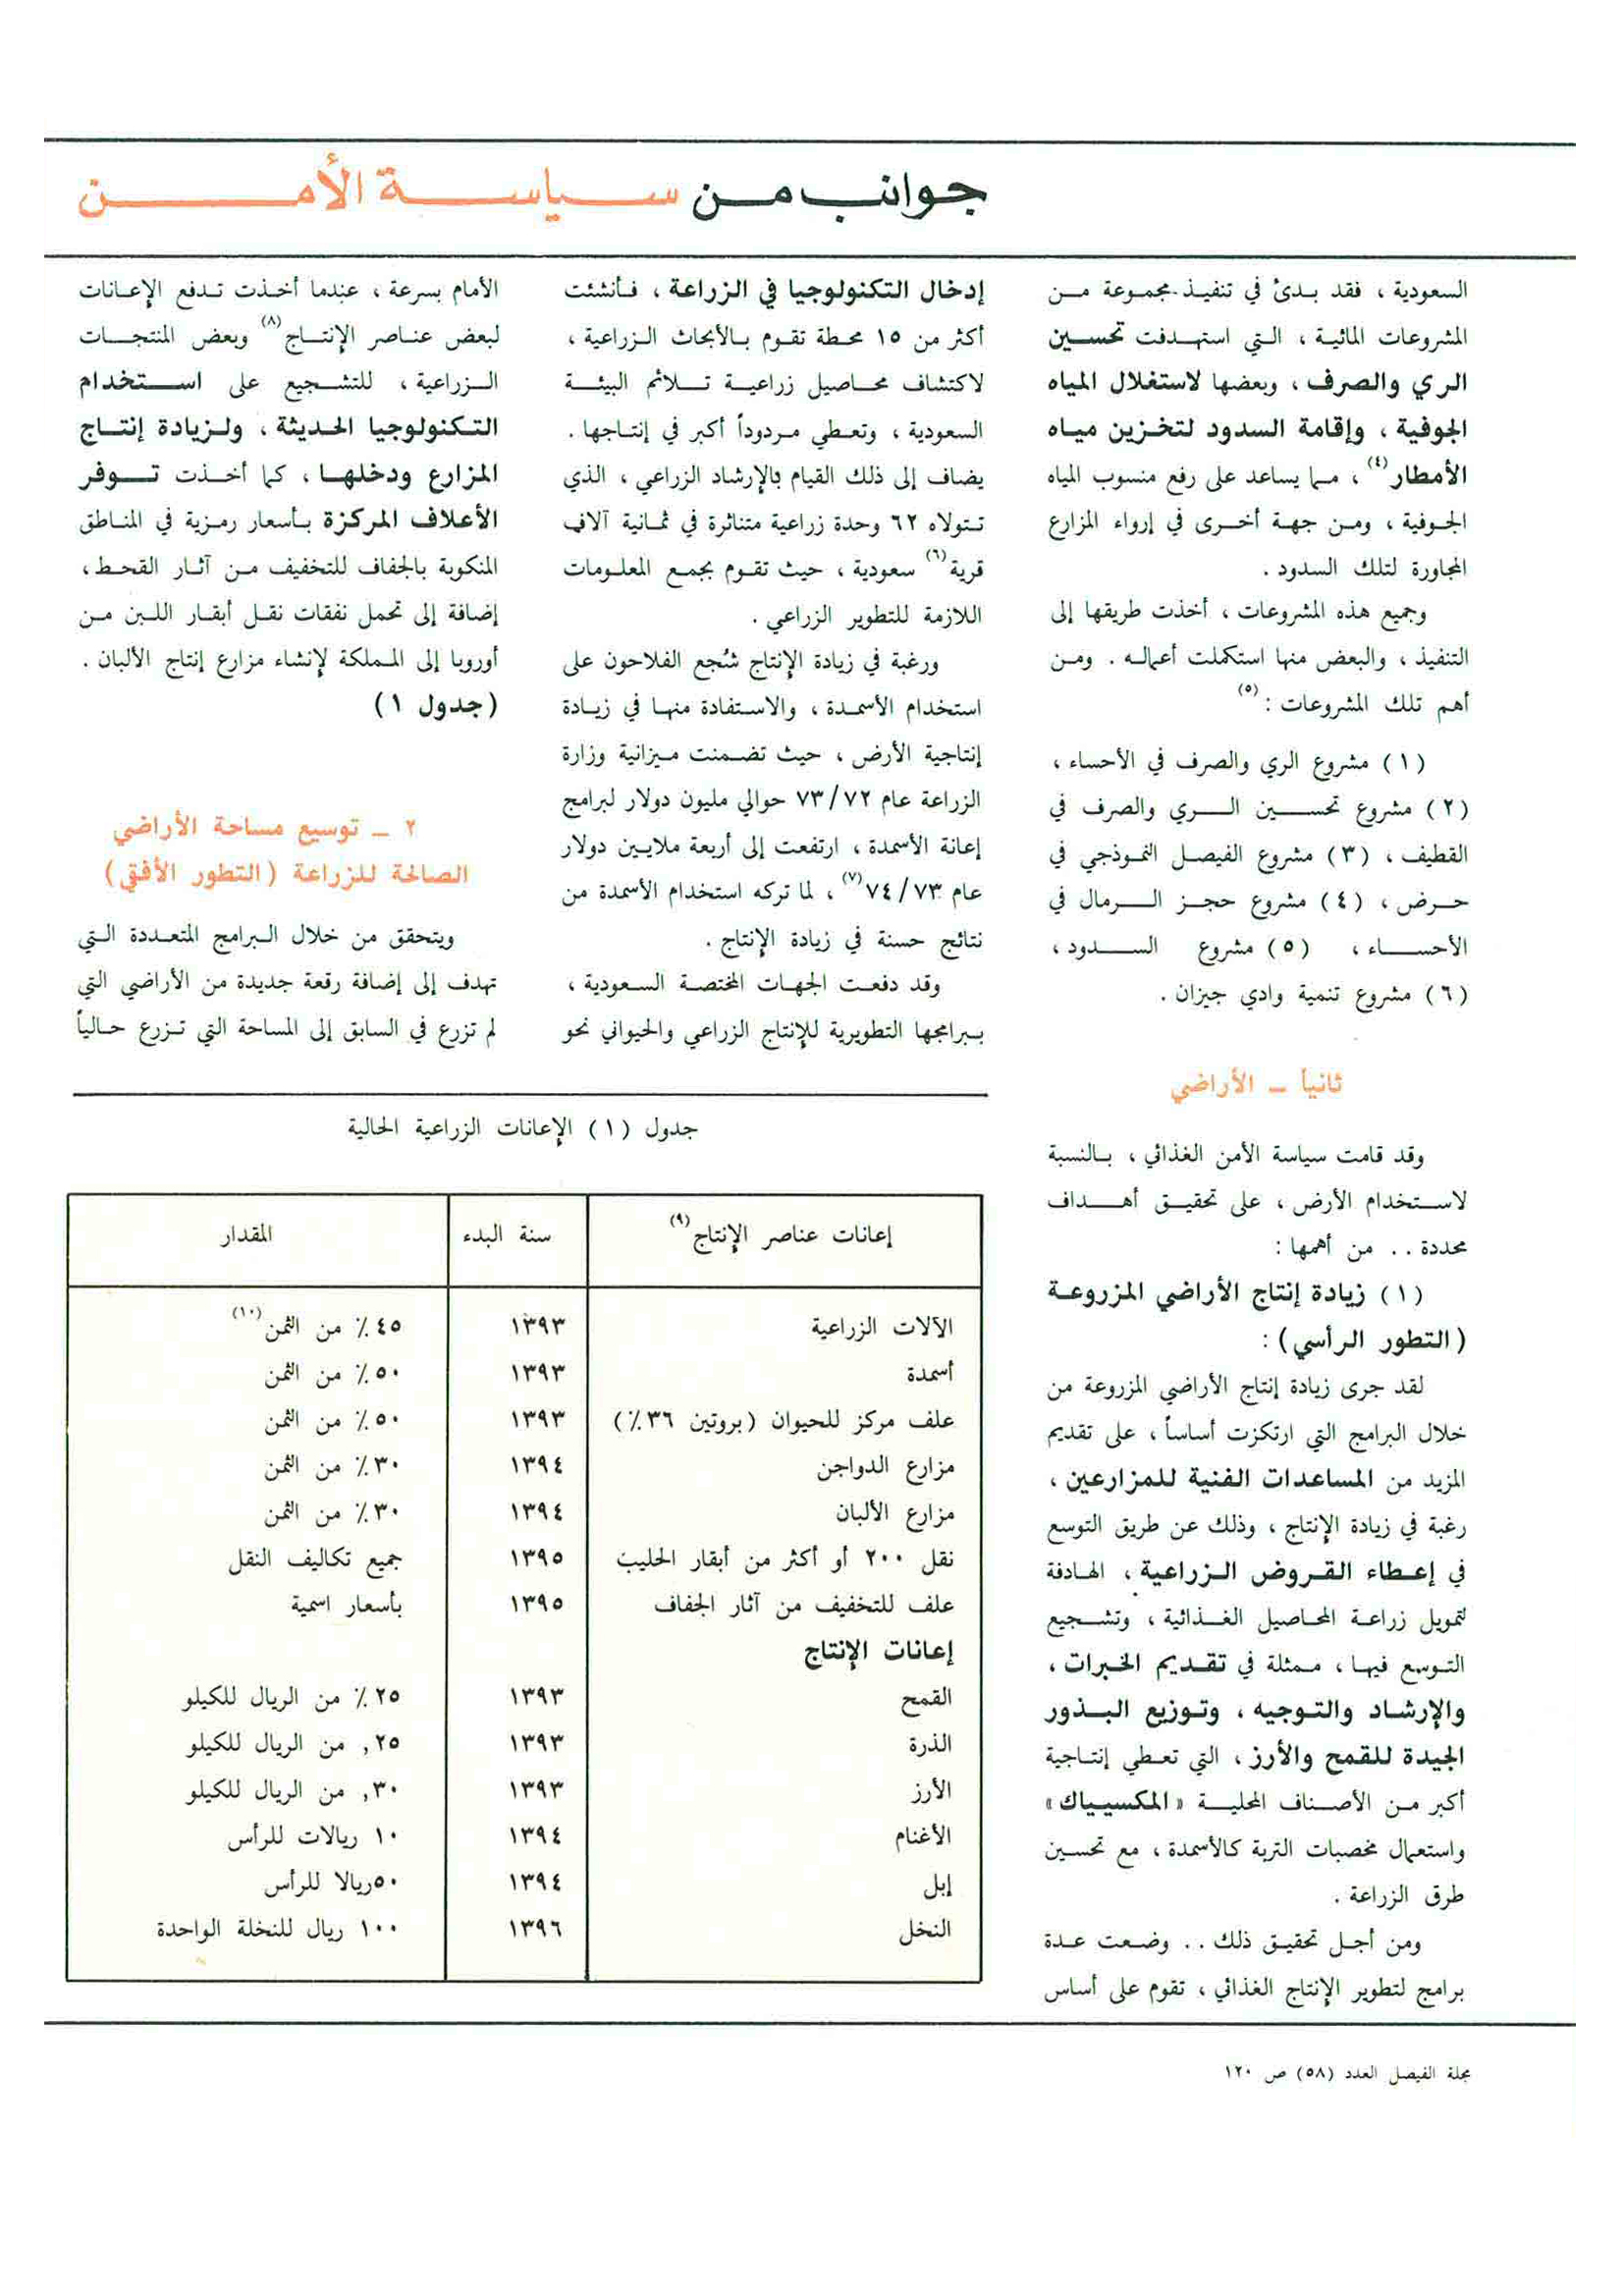 جوانب من سياسة الأمن
السعودية ، فقد بدئ في تنفيذ مجموعة من
المشروعات المائية ، التي استهدفت تحسين
الري والصرف ، وبعضها لاستغلال المياه
الجوفية ، وإقامة السدود لتخزين مياه
الأمطار(٤) ، مما يساعد على رفع منسوب المياه
الجوفية ، ومن جهة أخرى في إرواء المزارع
المجاورة لتلك السدود .
وجميع هذه المشروعات ، أخذت طريقها إلى
التنفيذ ، والبعض منها استكملت أعماله . ومن
أهم تلك المشروعات :(٥)
(١) مشروع الري والصرف في الأحساء ،
(٢) مشروع تحسين الري والصرف في
القطيف ، (٣) مشروع الفيصل النموذجي في
حرض ، (٤) مشروع حجز الرمال في
الأحساء ، (٥) مشروع السدود ،
(٦) مشروع تنمية وادي جيزان .
ثانياً – الأراضي
وقد قامت سياسة الأمن الغذائي ، بالنسبة
لاستخدام الأرض ، على تحقيق أهداف
محددة .. من أهمها :
(١) زيادة إنتاج الأراضي المزروعة
(التطور الرأسي) :
لقد جرى زيادة إنتاج الأراضي المزروعة من
خلال البرامج التي ارتكزت أساساً ، على تقديم
المزيد من المساعدات الفنية للمزارعين ،
رغبة في زيادة الإنتاج ، وذلك عن طريق التوسع
في إعطاء القروض الزراعية ، الهادفة
لتمويل زراعة المحاصيل الغذائية ، وتشجيع
التوسع فيها ، ممثلة في تقديم الخبرات ،
والإرشاد والتوجيه ، وتوزيع البذور
الجيدة للقمح والأرز ، التي تعطي إنتاجية
أكبر من الأصناف المحلية «المكسيباك»
واستعمال مخصبات التربة كالأسمدة ، مع تحسين
طرق الزراعة .
ومن أجل تحقيق ذلك .. وضعت عدة
برامج لتطوير الإنتاج الغذائي ، تقوم على أساس
إدخال التكنولوجيا في الزراعة ، فأنشئت
أكثر من ١٥ محطة تقوم بالأبحاث الزراعية ،
لاكتشاف محاصيل زراعية تلائم البيئة
السعودية ، وتعطي مردوداً أكبر في إنتاجها .
يضاف إلى ذلك القيام بالإرشاد الزراعي ، الذي
تتولاه ٦٢ وحدة زراعية متناثرة في ثمانية آلاف
قرية(٦) سعودية ، حيث تقوم بجمع المعلومات
اللازمة للتطوير الزراعي .
ورغبة في زيادة الإنتاج شُجع الفلاحون على
استخدام الأسمدة ، والاستفادة منها في زيادة
إنتاجية الأرض ، حيث تضمنت ميزانية وزارة
الزراعة عام ٧٣/٧٢ حوالي مليون دولار لبرامج
إعانة الأسمدة ، ارتفعت إلى أربعة ملايين دولار
عام ٧٤/٧٣(٧) ، لما تركه استخدام الأسمدة من
نتائج حسنة في زيادة الإنتاج .
وقد دفعت الجهات المختصة السعودية ،
ببرامجها التطويرية للإنتاج الزراعي والحيواني نحو
الأمام بسرعة ، عندما أخذت تدفع الإعانات
لبعض عناصر الإنتاج(٨) وبعض المنتجات
الزراعية ، للتشجيع على استخدام
التكنولوجيا الحديثة ، ولزيادة إنتاج
المزارع ودخلها ، كما أخذت توفر
الأعلاف المركزة بأسعار رمزية في المناطق
المنكوبة بالجفاف للتخفيف من آثار القحط ،
إضافة إلى تحمل نفقات نقل أبقار اللبن من
أوروبا إلى المملكة لإنشاء مزارع إنتاج الألبان .
(جدول ١)
٢ – توسيع مساحة الأراضي
الصالحة للزراعة (التطور الأفقي)
ويتحقق من خلال البرامج المتعددة التي
تهدف إلى إضافة رقعة جديدة من الأراضي التي
لم تزرع في السابق إلى المساحة التي تزرع حالياً
جدول (١) الإعانات الزراعية الحالية
إعانات عناصر الإنتاج(٩) سنة البدء المقدار
الآلات الزراعية ١٣٩٣ ٤٥٪ من الثمن(١٠)
أسمدة ١٣٩٣ ٥٠٪ من الثمن
علف مركز للحيوان (بروتين ٣٦٪) ١٣٩٣ ٥٠٪ من الثمن
مزارع الدواجن ١٣٩٤ ٣٠٪ من الثمن
مزارع الألبان ١٣٩٤ ٣٠٪ من الثمن
نقل ٢٠٠ أو أكثر من أبقار الحليب ١٣٩٥ جميع تكاليف النقل
علف للتخفيف من آثار الجفاف ١٣٩٥ بأسعار اسمية
إعانات الإنتاج
القمح ١٣٩٣ ٢٥٪ من الريال للكيلو
الذرة ١٣٩٣ ٢٥, من الريال للكيلو
الأرز ١٣٩٣ ٣٠, من الريال للكيلو
الأغنام ١٣٩٤ ١٠ ريالات للرأس
إبل ١٣٩٤ ٥٠ريالا للرأس
النخل ١٣٩٦ ١٠٠ ريال للنخلة الواحدة
مجلة الفيصل العدد (٥٨) ص ١٢٠